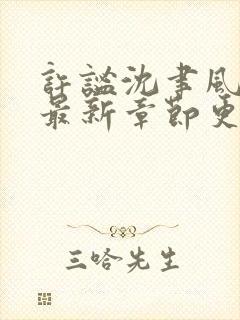 許謐沈聿風
最新章節更
三哈先生